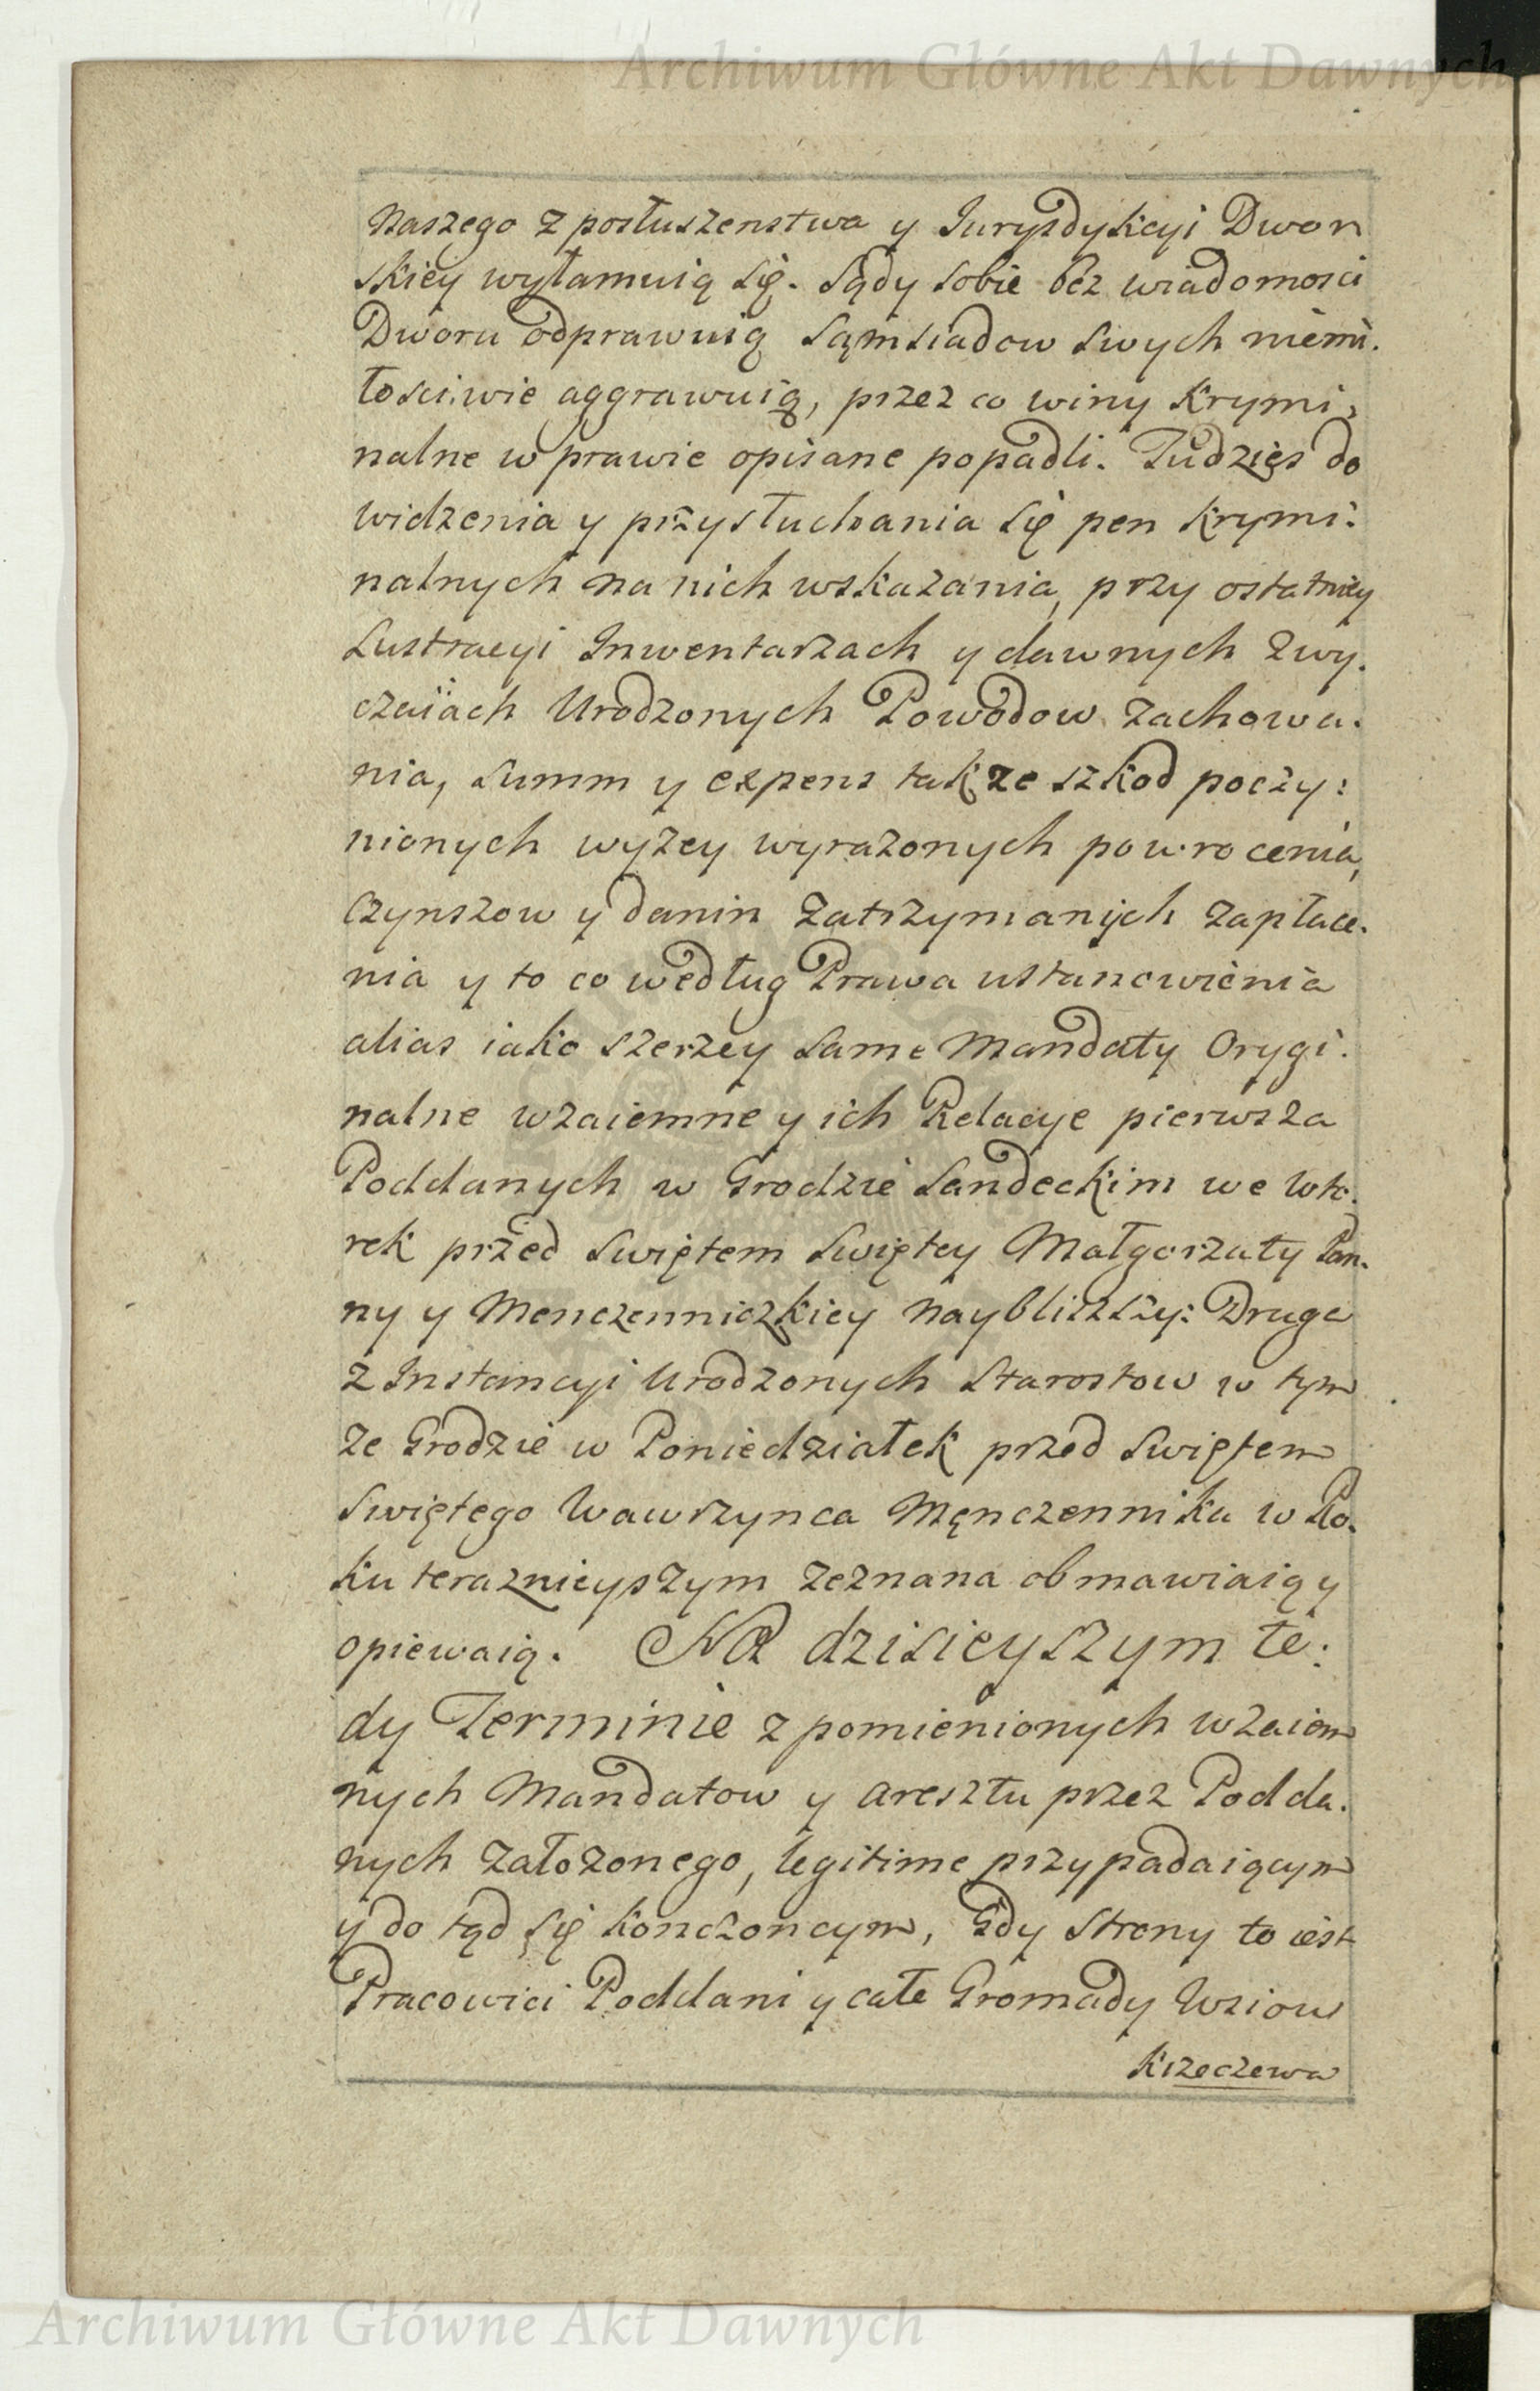 Archiwum Główne Akt Dawnych
Naszego z posłuszenstwa y Jurysdykcyi Dwor
skiey wyłamuią się. Sądy sobie bez wiadomosci
Dworu odprawuią Sąmsiadow swych niemi.
łosciwie aggrawuią, przez co winy krymi,
nalne w prawie opisane popadli. Tudzięs do
widzenia y przysłuchania się pen krymi:
nalnych na nich wskazania, przy ostatniey
Lustracyi Inwentarzach y dawnych zwy.
czaïach Urodzonych Powodow zachowa.
nia, summ y expens także szkod poczy:
nionych wyzey wyrazonych powrocenia,
Czynszow y danin zatrzymanych zapłace.
nia y to co według Prawa ustanowienia
alias iako szerzey same Mandaty Orygi.
nalne wzaiemne y ich Relacye pierwsza
Poddanych w Grodzie Sandeckim we Wto.
rek przed Swiętem Swiętey Małgorzaty Pan.
ny y Menczenniczkiey naybliszszy: Druga
z Instancyi Urodzonych Starostow w tym
ze Grodzie w Poniedziałek przed Swiętem
Swiętego Wawrzynca Męnczennika w Ro.
ku teraznieyszym zeznana obmawiaią y
opiewaią. Na dzisieyszym te:
dy Terminie z pomienionych wzaiem
nych Mandatow y aresztu przez Podda.
nych założonego, legitime przypadaiącym
y do tąd się konczoncym, Gdy Strony to iest
Pracowici Poddani y całe Gromady Wsiow
Krzeczewa
Archiwum Główne Akt Dawnych